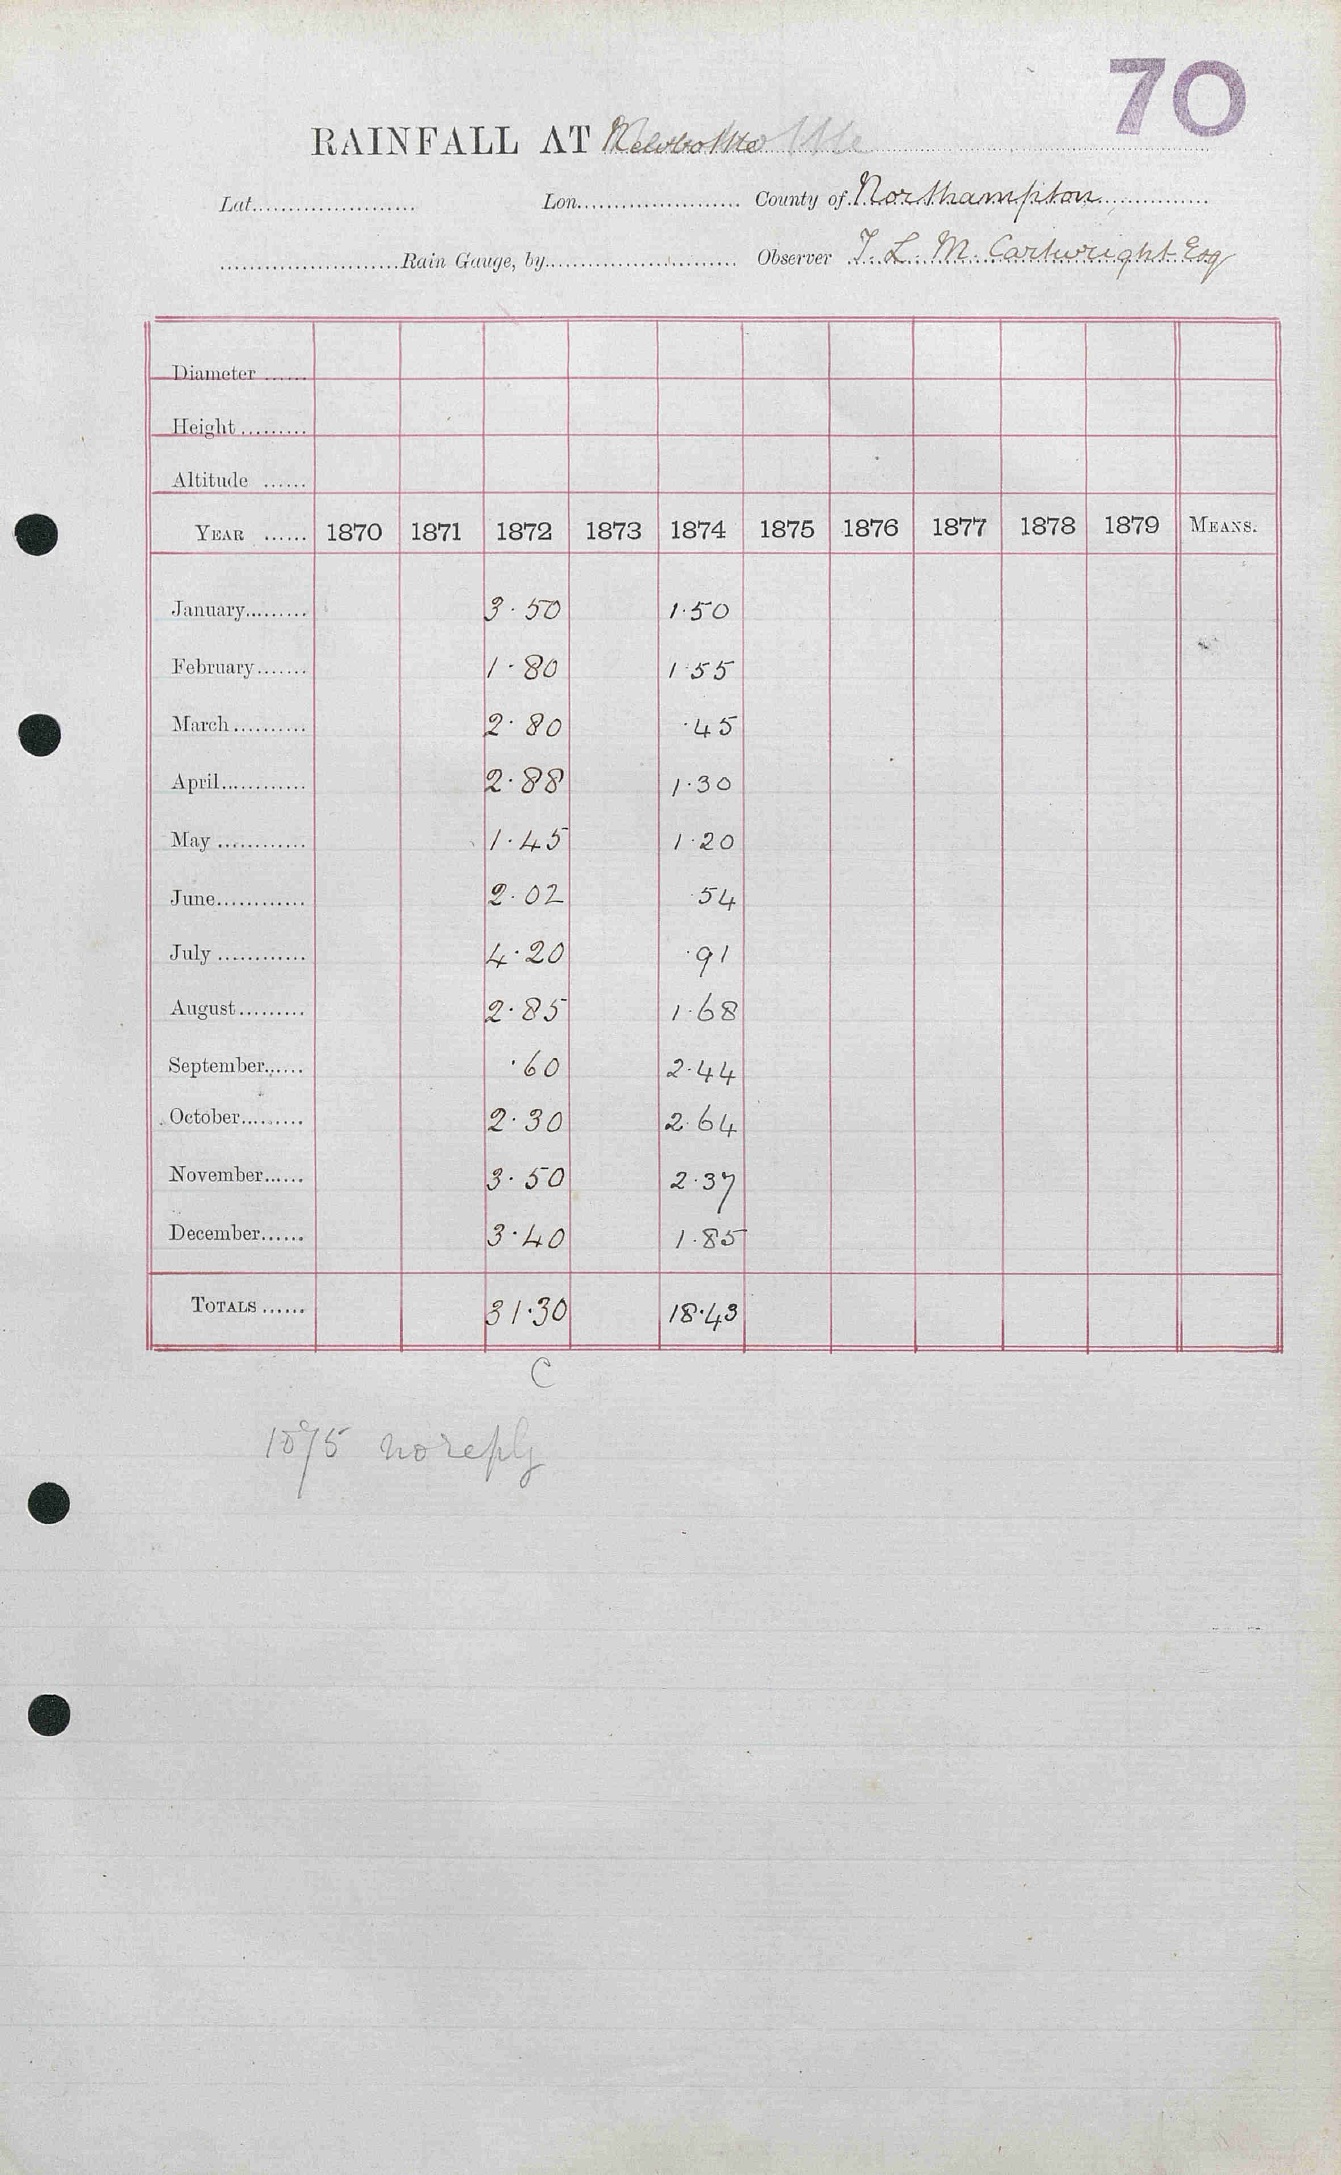 70
RAINFALL AT Newbottle
Lat. Lon. County of Northampton
Rain Gauge, by Observer T. L. M. Cartwright Esq
Diameter
Height
Altitude
YEAR 1870 1871 1872 1873 1874 1875 1876 1877 1878 1879 MEANS.
January 3.50 1.50
February 1.80 1.55
March 2.80 .45
April 2.88 1.30
May 1.45 1.20
June 2.02 .54
July 4.20 .91
August 2.85 1.68
September .60 2.44
October 2.30 2.64
November 3.50 2.37
December 3.40 1.85
TOTALS 31.30 18.43
C
1875 no reply